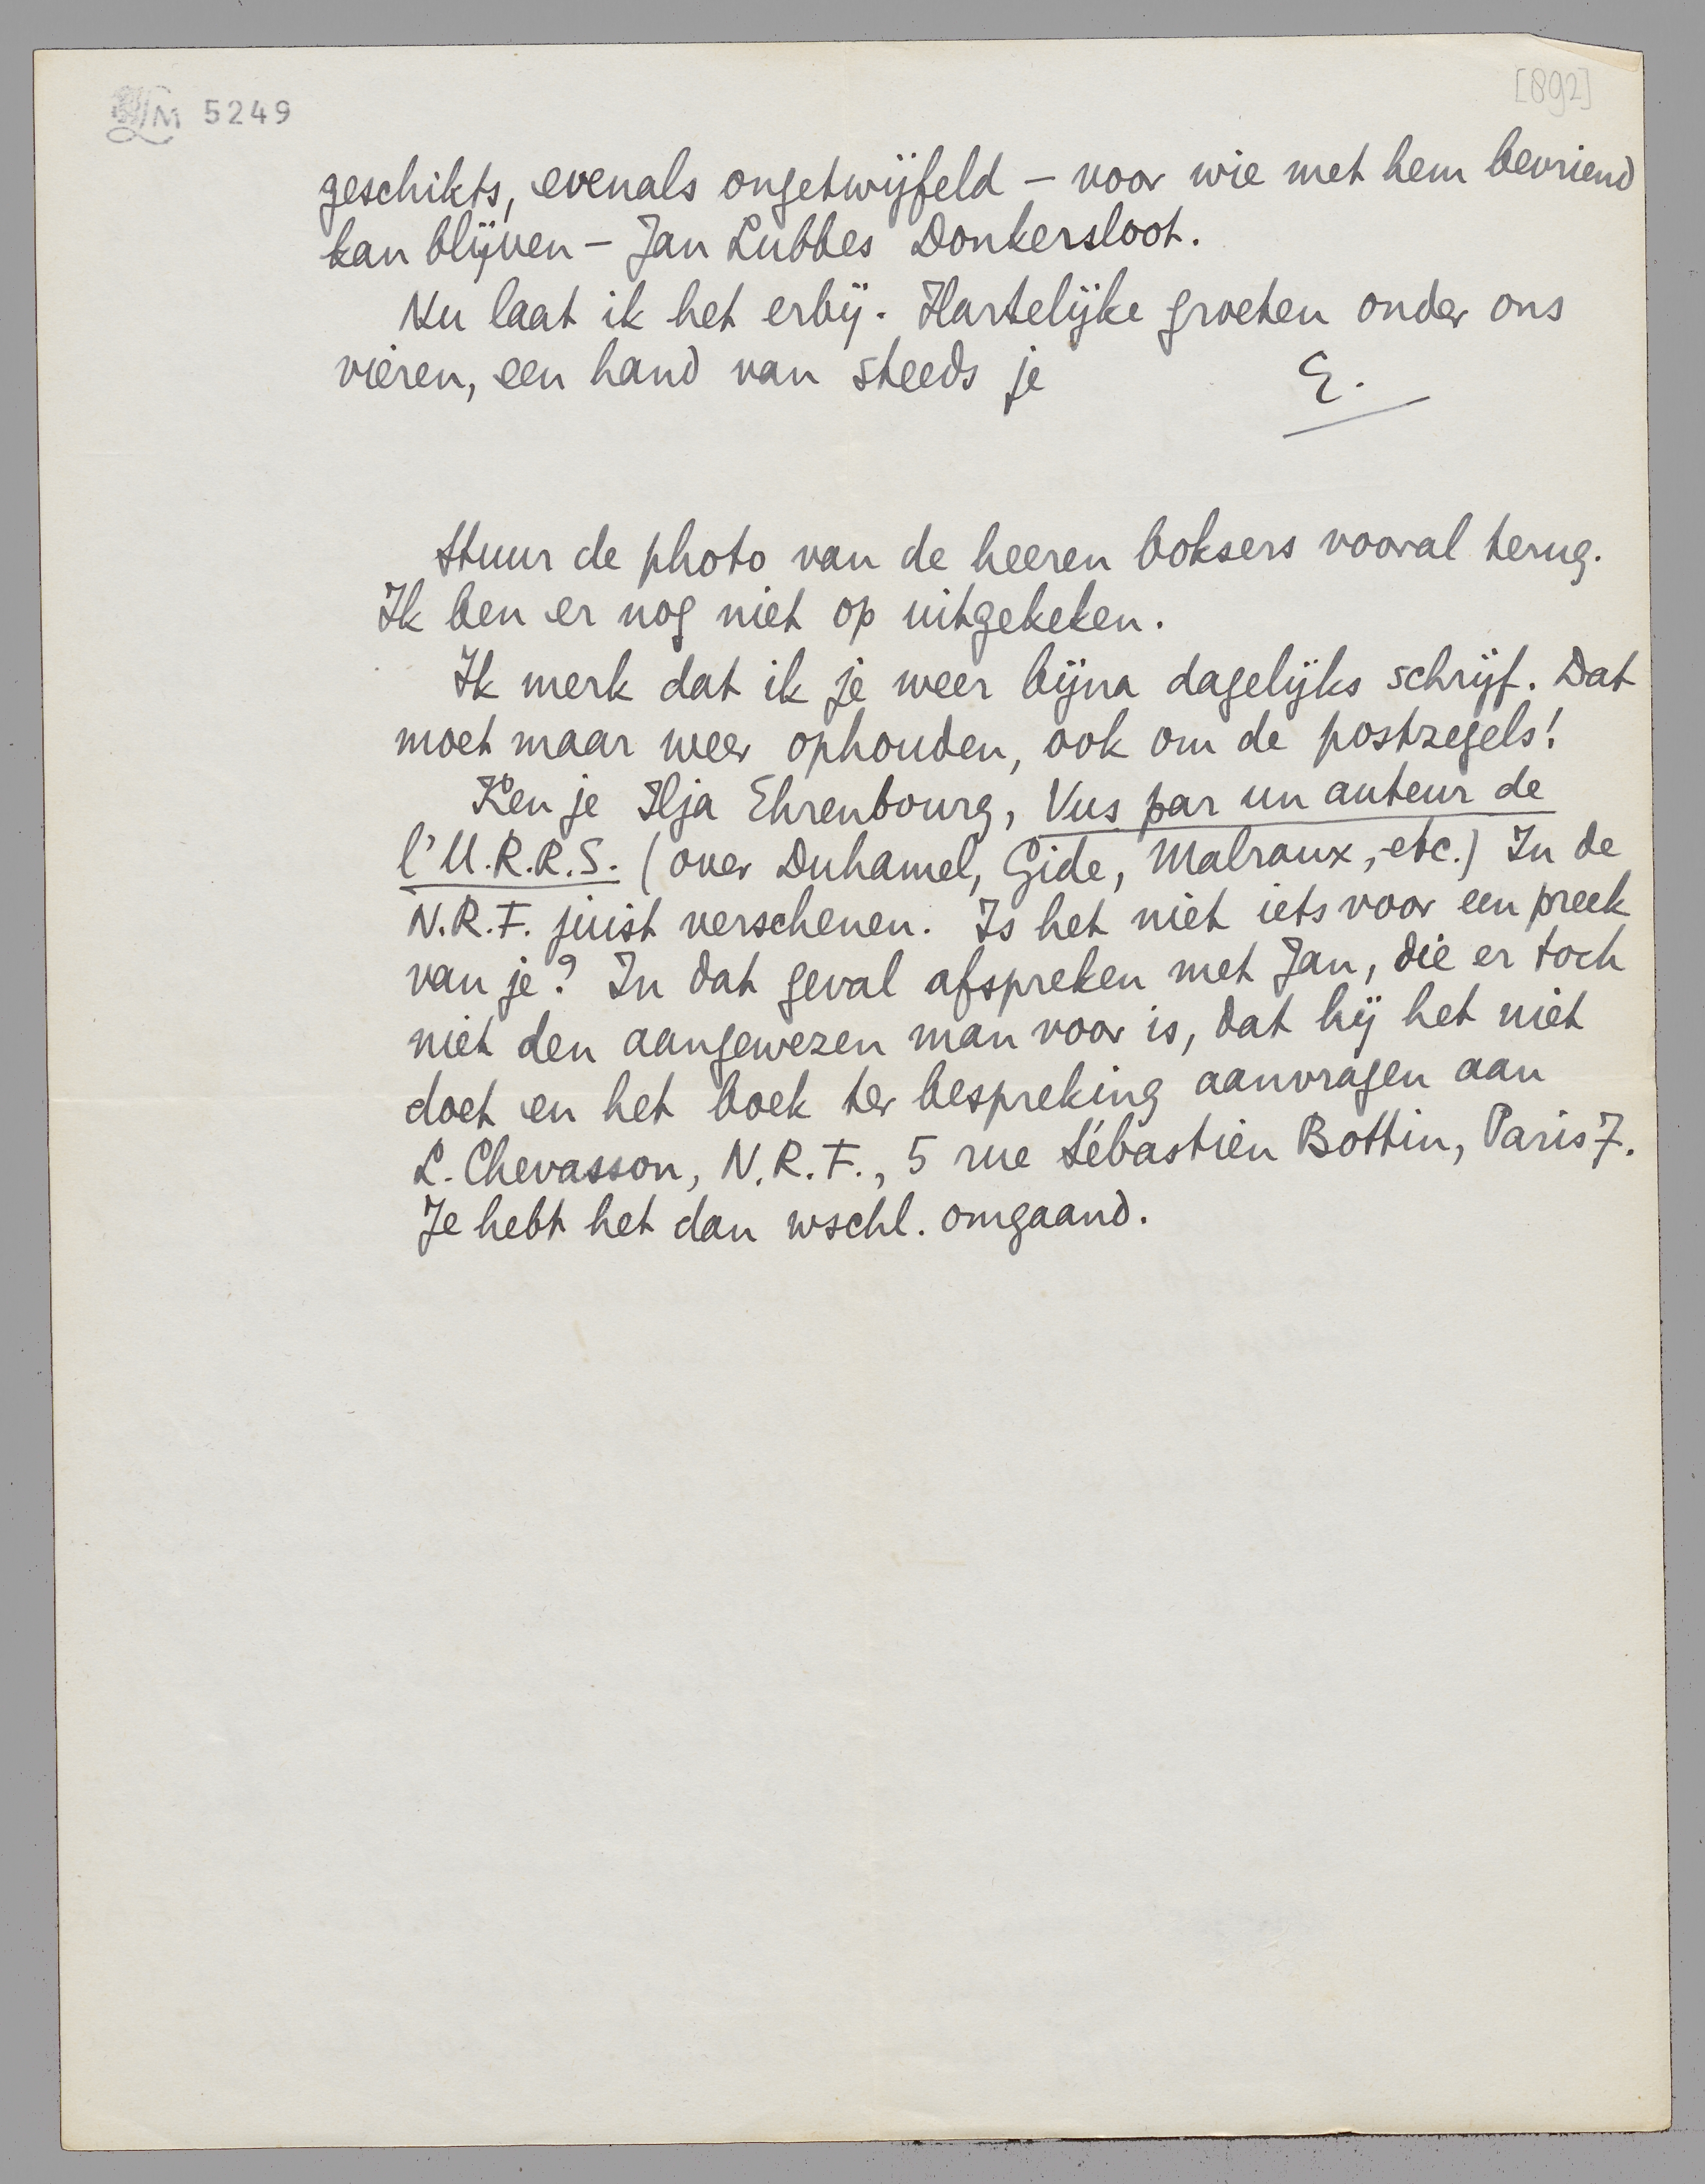 LM 5249
[892]
geschikts, evenals ongetwijfeld – voor wie met hem bevriend
kan blijven – Jan Lubbes Donkersloot.
Nu laat ik het erbij. Hartelijke groeten onder ons
vieren, een hand van steeds je E.
Stuur de photo van de heeren boksers vooral terug.
Ik ben er nog niet op uitgekeken.
Ik merk dat ik je weer bijna dagelijks schrijf. Dat
moet maar weer ophouden, ook om de postzegels!
Ken je Ilja Ehrenbourg, Vus par un auteur de
l'U.R.R.S. (over Duhamel, Gide, Malraux, etc.) In de
N.R.F. juist verschenen. Is het niet iets voor een preek
van je? In dat geval afspreken met Jan, die er toch
niet den aangewezen man voor is, dat hij het niet
doet en het boek ter bespreking aanvragen aan
L. Chevasson, N.R.F., 5 rue Sébastien Bottin, Paris 7.
Je hebt het dan wschl. omgaand.